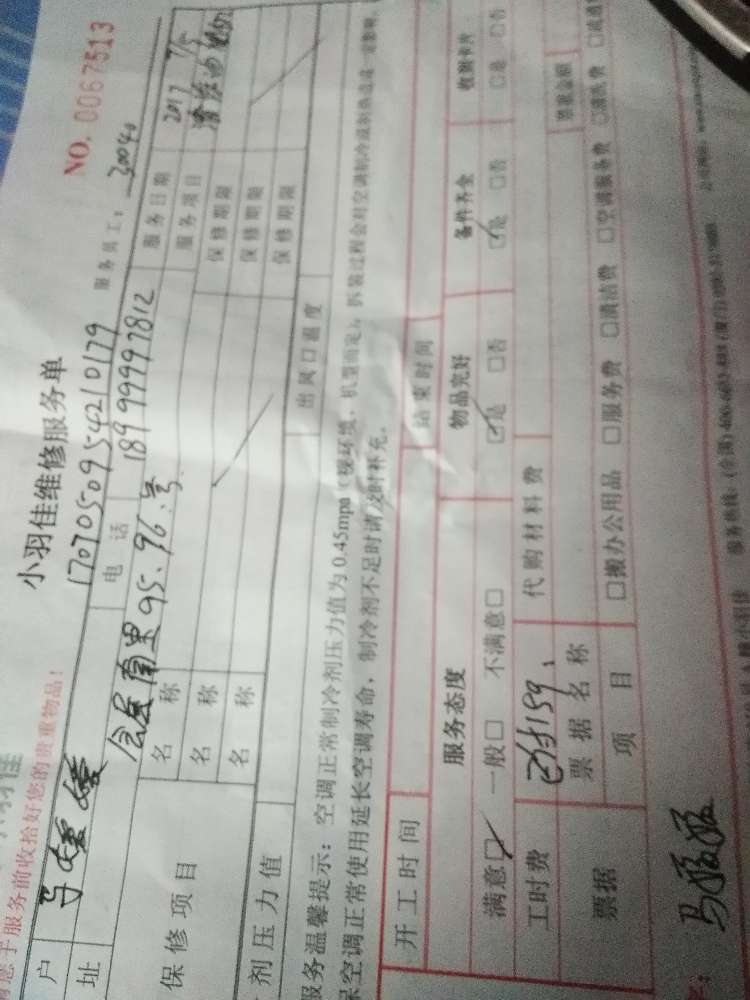 服务前收拾好您的贵重物品!
小羽佳维修服务单
NO. 0067513
17070509542 10179
服务员工: 30040
户
马媛媛
电话
18999997812
服务日期
2017 7/5
址
南里95、96号
服务项目
清洗油烟机
保修项目
名称
保修期限
名称
保修期限
名称
保修期限
剂压力值
出风口温度
服务温馨提示: 空调正常制冷剂压力值为0.45mpa(视环境、机型而定), 拆装过程会对空调制冷或制热造成一定影响,
保空调正常使用延长空调寿命, 制冷剂不足时请及时补充。
开工时间
结束时间
服务态度
物品完好
备件齐全
收到卡片
满意☑ 一般□ 不满意□
☑是 □否
☑是 □否
□是 □否
工时费
已付159、
代购材料费
票据
票据名称
项目
□搬办公用品 □服务费 □清洁费 □空调服务费 □清洗费
马媛媛
服务热线: (全国)